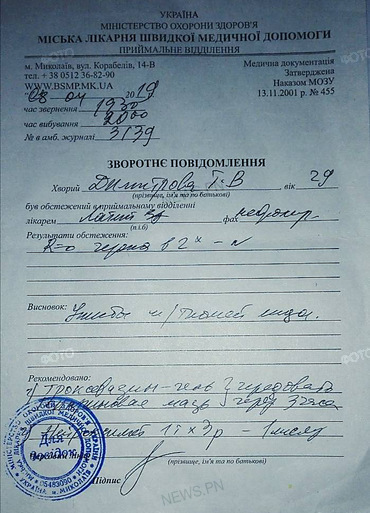 УКРАЇНА
МІНІСТЕРСТВО ОХОРОНИ ЗДОРОВ'Я
МІСЬКА ЛІКАРНЯ ШВИДКОЇ МЕДИЧНОЇ ДОПОМОГИ
ПРИЙМАЛЬНЕ ВІДДІЛЕННЯ
м. Миколаїв, вул. Корабелів, 14-В
тел. + 38 0512 36-82-90
WWW.BSMP.MK.UA
Медична документація
Затверджена
Наказом МОЗУ
13.11.2001 р. № 455
"08" 04 2019
час звернення 1930
час вибування 2000
№ в амб. журналі 3139
ЗВОРОТНЄ ПОВІДОМЛЕННЯ
Хворий Димитрова Т.В вік 29
(прізвище, ім'я та по батькові)
був обстежений в приймальному відділенні
лікарем фах нейрохир.
(п.і.б)
Результати обстеження:
R-о черепа в 2х - N
Висновок: Ушибы м/тканей лица.
Рекомендовано:
1) Троксевазин-гель чередовать
мазь через 3 часа
1т х 3р - 1 месяц
Для довідок
Підпис
(прізвище, ім'я та по батькові)
ФОТО
NEWS.PN